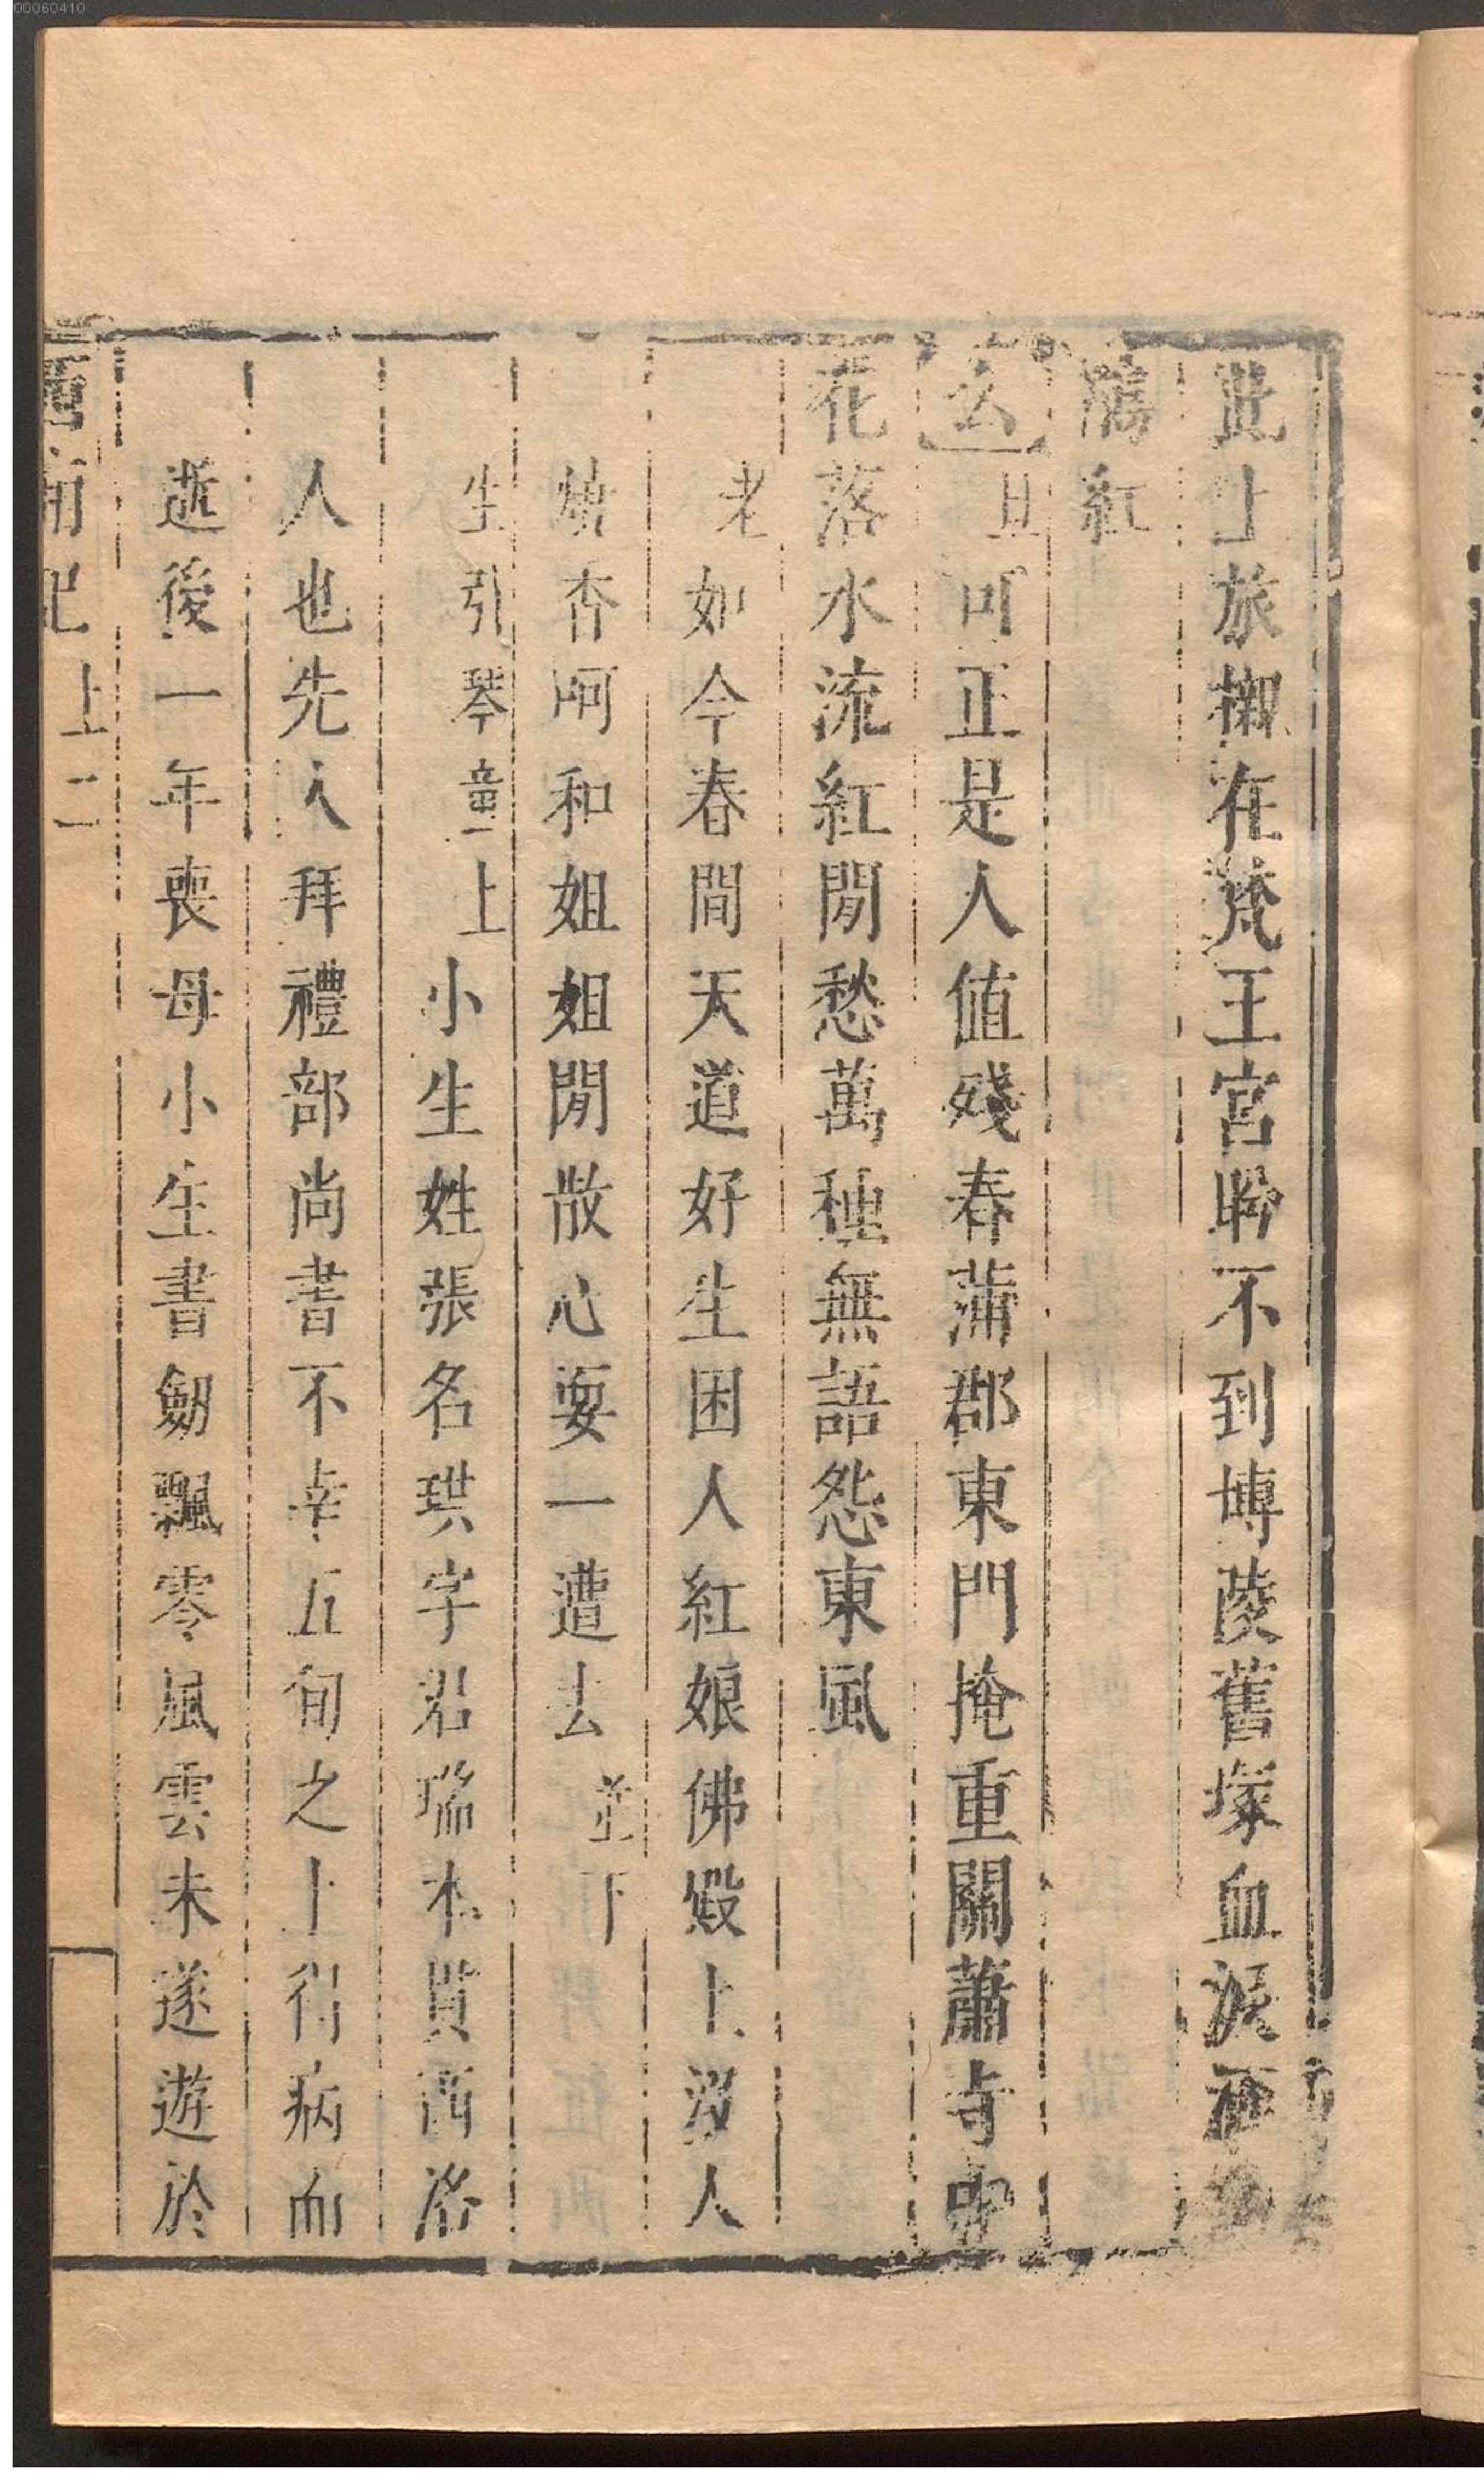 00060410
此上旅櫬在梵王宮盼不到博陵舊塚血淚洒
鵑紅
么旦可正是人値殘春蒲郡東門掩重關蕭寺中
花落水流紅閒愁萬種無語怨東風
老如今春間天道好生困人紅娘佛殿上沒人
燒香呵和姐姐閒散心耍一遭去並下
生引琴童上小生姓張名珙字君瑞本貫西洛
人也先人拜禮部尚書不幸五旬之上得病而
逝後一年喪母小生書劒飄零風雲未遂遊於
西廂記 上 二